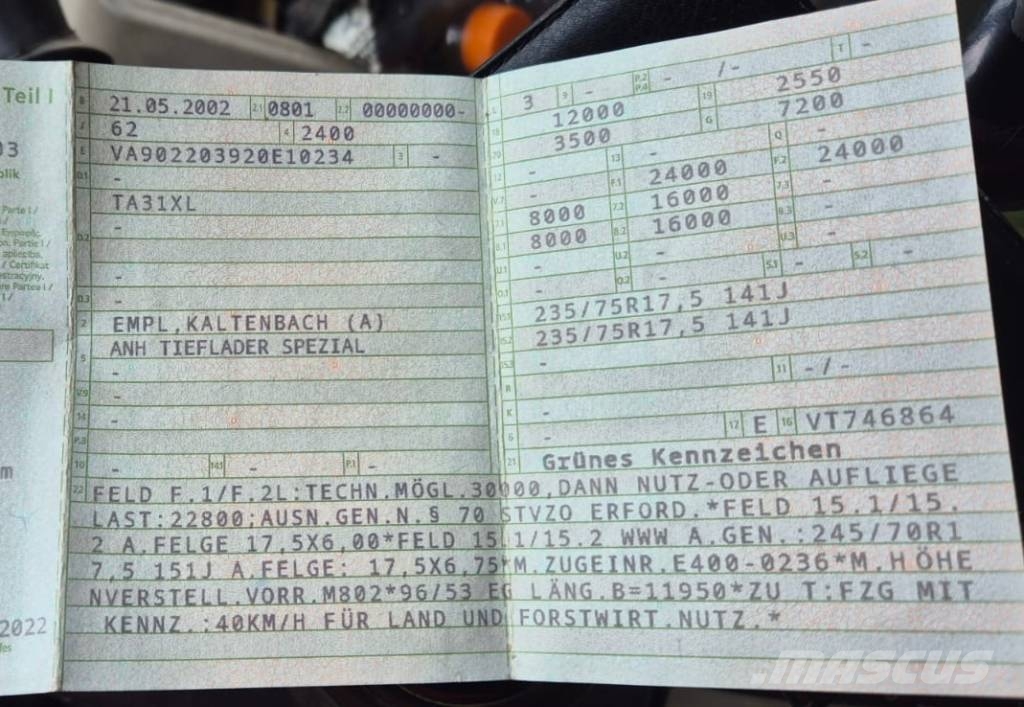 Teil I
03
blik
Parte I /
Certifikat
m
2022
B 21.05.2002 2.1 0801 2.2 00000000-
J 62 4 2400
E VA902203920E10234 3 -
D.1 -
TA31XL
D.2 -
-
D.3 -
2 EMPL,KALTENBACH (A)
5 ANH TIEFLADER SPEZIAL
-
V.9 -
14 -
P.3
10 - 14.1 - P.1 -
L 3 9 - P.2 P.4 - /- T -
18 12000 19 2550
20 3500 G 7200
12 - 13 - Q -
V.7 - F.1 24000 F.2 24000
7.1 8000 7.2 16000 7.3 -
8.1 8000 8.2 16000 8.3 -
U.1 - U.2 - U.3 -
O.1 - O.2 - S.1 - S.2 -
15.1 235/75R17,5 141J
15.2 235/75R17,5 141J
15.3 -
R 11 -/-
K -
6 - 17 E 16 VT746864
21 Grünes Kennzeichen
22 FELD F.1/F.2L:TECHN.MÖGL.30000,DANN NUTZ-ODER AUFLIEGE
LAST:22800;AUSN.GEN.N.§ 70 STVZO ERFORD.*FELD 15.1/15.
2 A.FELGE 17,5X6,00*FELD 15.1/15.2 WWW A.GEN.:245/70R1
7,5 151J A.FELGE: 17,5X6,75*M.ZUGEINR.E400-0236*M.HÖHE
NVERSTELL.VORR.M802*96/53 EG LÄNG.B=11950*ZU T:FZG MIT
KENNZ.:40KM/H FÜR LAND UND FORSTWIRT.NUTZ.*
mascus